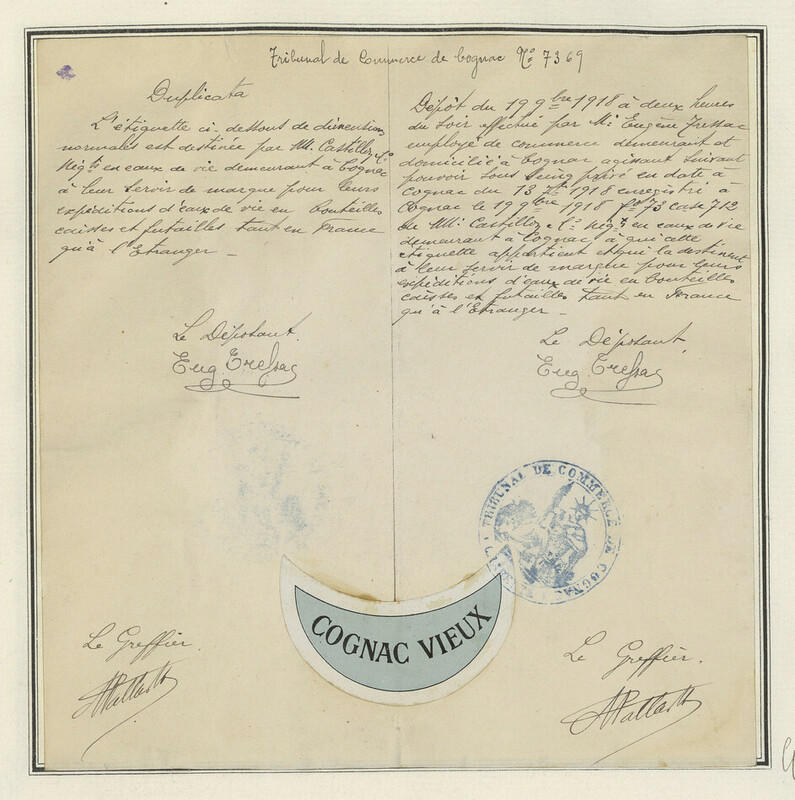 Tribunal de Commerce de Cognac No 7369
Duplicata
L'étiquette ci-dessous de dimentions
normales est destinée par MM. Castillon & Cie
Négts en eaux de vie demeurant à Cognac
à leur servir de marque pour leurs
expéditions d'eaux de vie en bouteilles
caisses et futailles tant en France
qu'à l'Etranger _
Le Déposant.
Eug. Tressac
Dépôt du 19 9bre 1918 à deux heures
du soir effectué par Mr Eugène Tressac
employé de commerce demeurant et
domicilié à Cognac agissant suivant
pouvoir sous seing privé en date à
Cognac du 13 1918 enregistré à
Cognac le 19 9bre 1918 fo 73 case 712
de MM. Castillon & Cie Négts en eaux de vie
demeurant à Cognac à qui cette
étiquette appartient et qui la destinent
à leur servir de marque pour leurs
expéditions d'eaux de vie en bouteilles
caisses et futailles tant en France
qu'à l'Etranger _
Le Déposant,
Eug. Tressac
TRIBUNAL DE COMMERCE DE COGNAC
COGNAC VIEUX
Le Greffier.
Le Greffier.